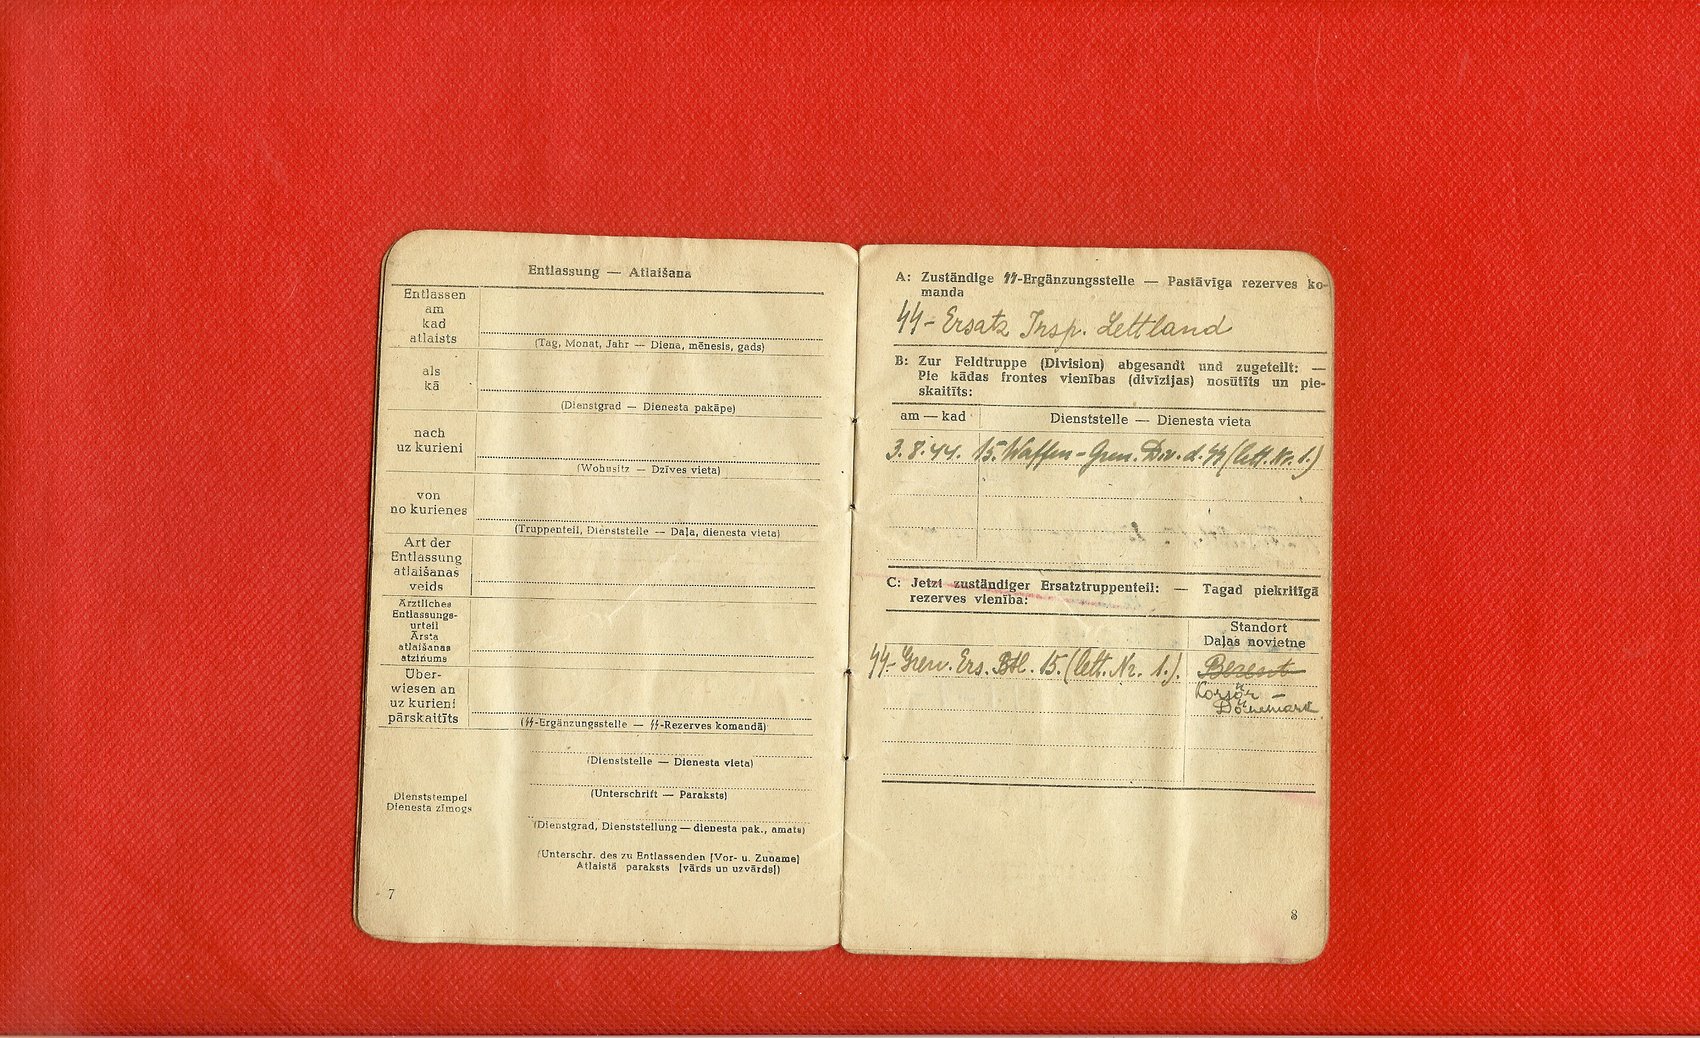 Entlassung — Atlaišana
Entlassen
am
kad
atlaists
(Tag, Monat, Jahr — Diena, mēnesis, gads)
als
kā
(Dienstgrad — Dienesta pakāpe)
nach
uz kurieni
(Wohnsitz — Dzīves vieta)
von
no kurienes
(Truppenteil, Dienststelle — Daļa, dienesta vieta)
Art der
Entlassung
atlaišanas
veids
Ärztliches
Entlassungs-
urteil
Ārsta
atlaišanas
atzinums
Über-
wiesen an
uz kurieni
pārskaitīts
(ᛋᛋ-Ergänzungsstelle — ᛋᛋ-Rezerves komandā)
(Dienststelle — Dienesta vieta)
(Unterschrift — Paraksts)
Dienststempel
Dienesta zīmogs
(Dienstgrad, Dienststellung — dienesta pak., amats)
(Unterschr. des zu Entlassenden [Vor- u. Zuname]
Atlaistā paraksts [vārds un uzvārds])
7
A: Zuständige ᛋᛋ-Ergänzungsstelle — Pastāvīga rezerves ko-
manda
ᛋᛋ-Ersatz Insp. Lettland
B: Zur Feldtruppe (Division) abgesandt und zugeteilt: —
Pie kādas frontes vienības (divīzijas) nosūtīts un pie-
skaitīts:
am — kad Dienststelle — Dienesta vieta
3.8.44. 15. Waffen-Gren. Div. d. ᛋᛋ (lett. Nr. 1.)
C: Jetzt zuständiger Ersatztruppenteil: — Tagad piekritīgā
rezerves vienība:
Standort
Daļas novietne
ᛋᛋ-Gren. Ers. Btl. 15. (lett. Nr. 1.). Berent
Korsör -
Dänemark
8